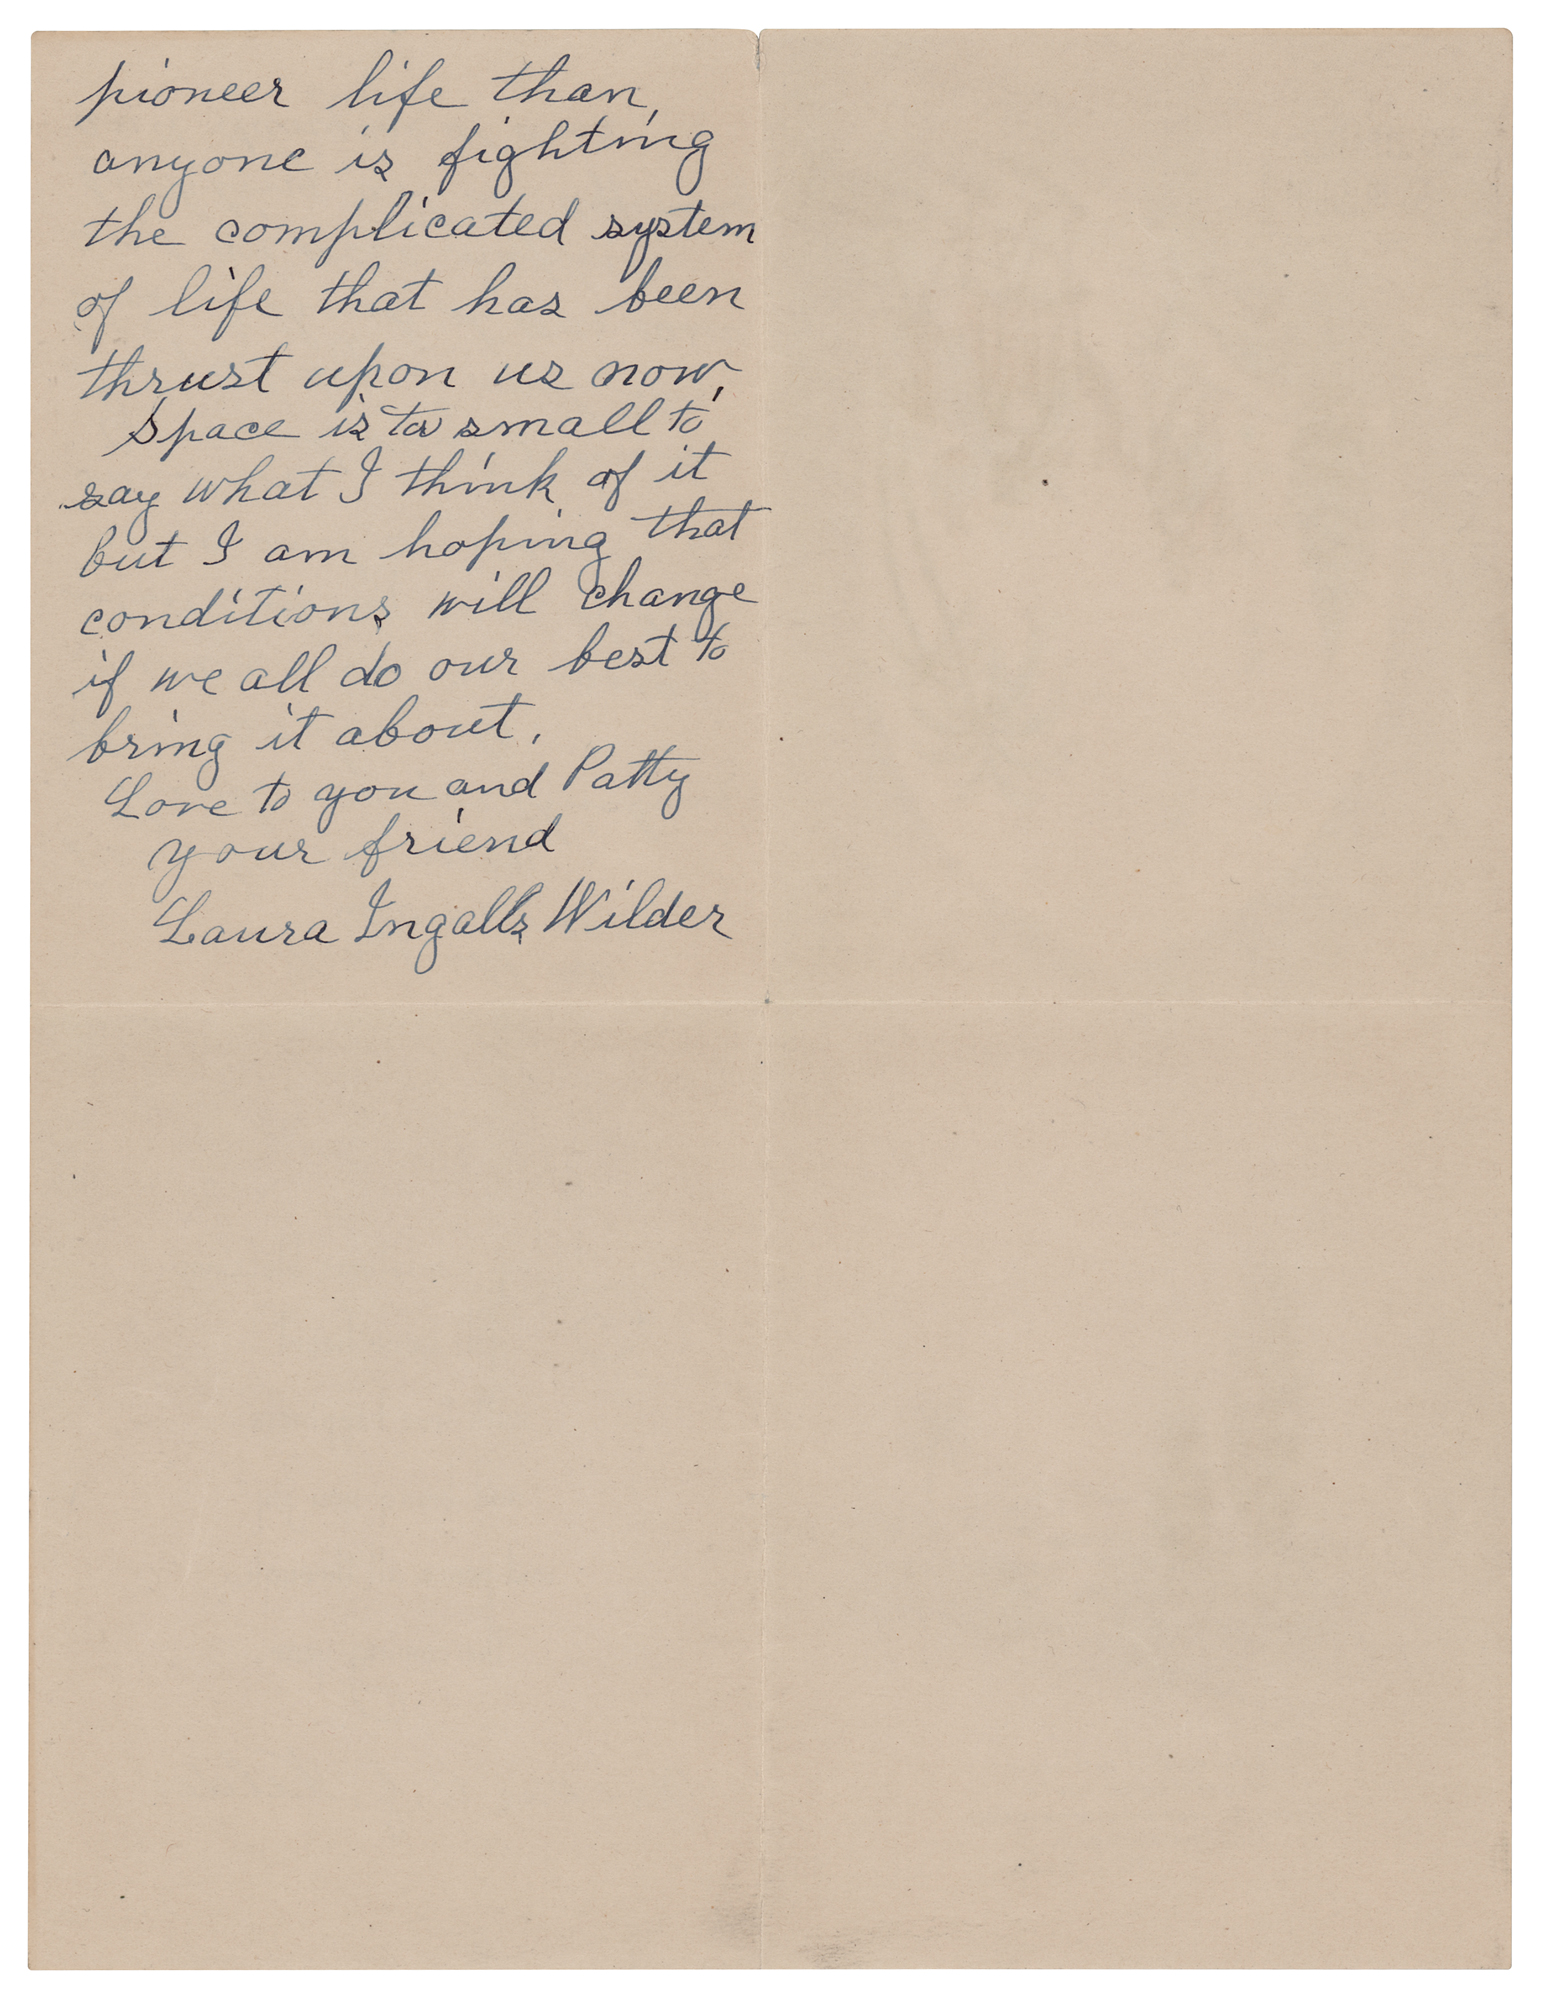 pioneer life than
anyone is fighting
the complicated system
of life that has been
thrust upon us now.
Space is too small to
say what I think of it
but I am hoping that
conditions will change
if we all do our best to
bring it about.
Love to you and Patty
your friend
Laura Ingalls Wilder